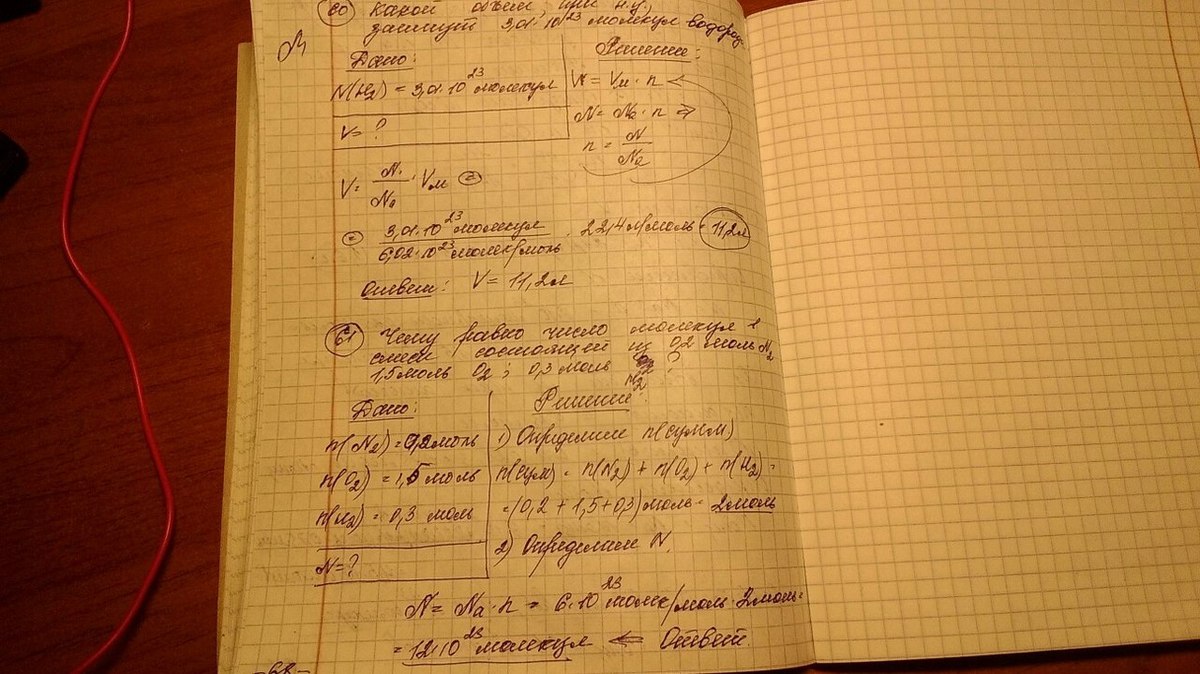 60) Какой объем при н.у.
займут 3,01·10²³ молекул водорода
Дано:
N(H₂) = 3,01·10²³ молекул
V = ?
Решение:
V = Vм · n
N = Na · n ⇒
n = N/Na
V = N/Na · Vм =
= 3,01·10²³ молекул / 6,02·10²³ молек/моль · 22,4 л/моль = 11,2л
Ответ: V = 11,2л
61) Чему равно число молекул в
смеси состоящей из 0,2 моль N₂
1,5 моль O₂; 0,3 моль H₂ ?
Дано:
n(N₂) = 0,2 моль
n(O₂) = 1,5 моль
n(H₂) = 0,3 моль
N = ?
Решение:
1) Определим n(сумм)
n(сум) = n(N₂) + n(O₂) + n(H₂) =
= (0,2 + 1,5 + 0,3) моль = 2 моль
2) Определим N.
N = Na · n = 6·10²³ молек/моль · 2 моль =
= 12·10²³ молекул ⇐ Ответ.
-68-